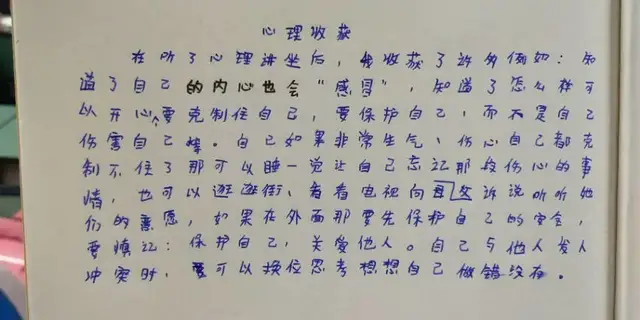 心理收获
在听了心理讲坐后，我收获了许多例如：知
道了自己的内心也会“感冒”，知道了怎么样可
以开心，要克制住自己，要保护自己，而不是自己
伤害自己。自己如果非常生气、伤心自己都克
制不住了那可以睡一觉让自己忘记那段伤心的事
情，也可以逛逛街，看看电视向母父诉说听听她
们的意愿，如果在外面那要先保护自己的安全，
要慎记：保护自己，关爱他人。自己与他人发人
冲突时，要可以换位思考想想自己做错没在。